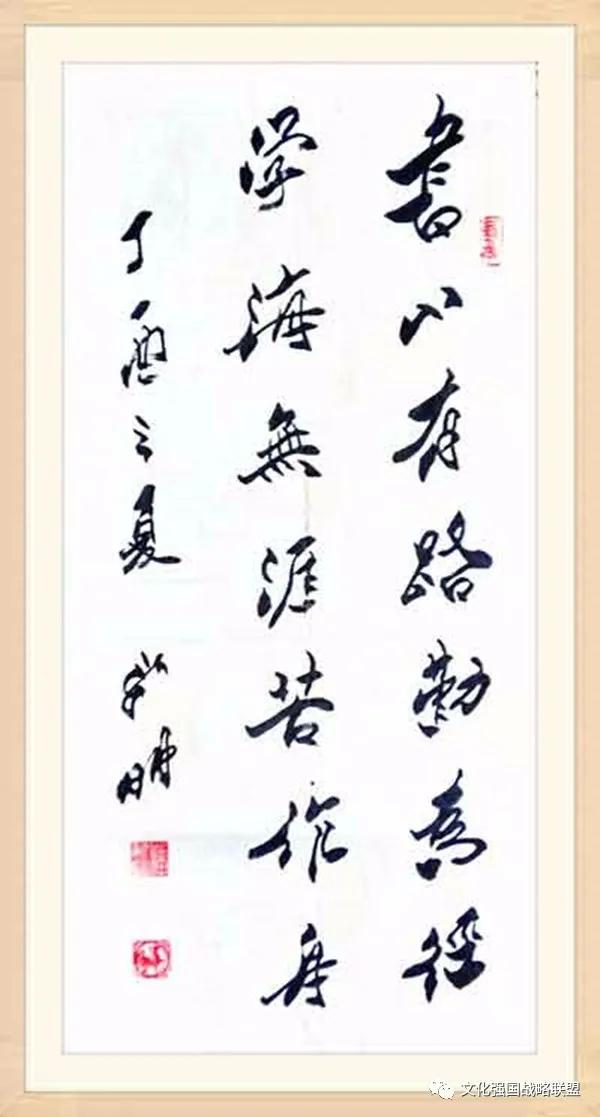 書山有路勤為徑
學海無涯苦作舟
丁酉之夏
明
文化强国战略联盟